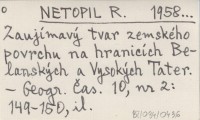 NETOPIL R. 1958...
Zaujímavý tvar zemského
povrchu na hraniciach Be-
lanských a Vysokých Tater.
- Geogr. čas. 10, nr 2:
149-150, il.